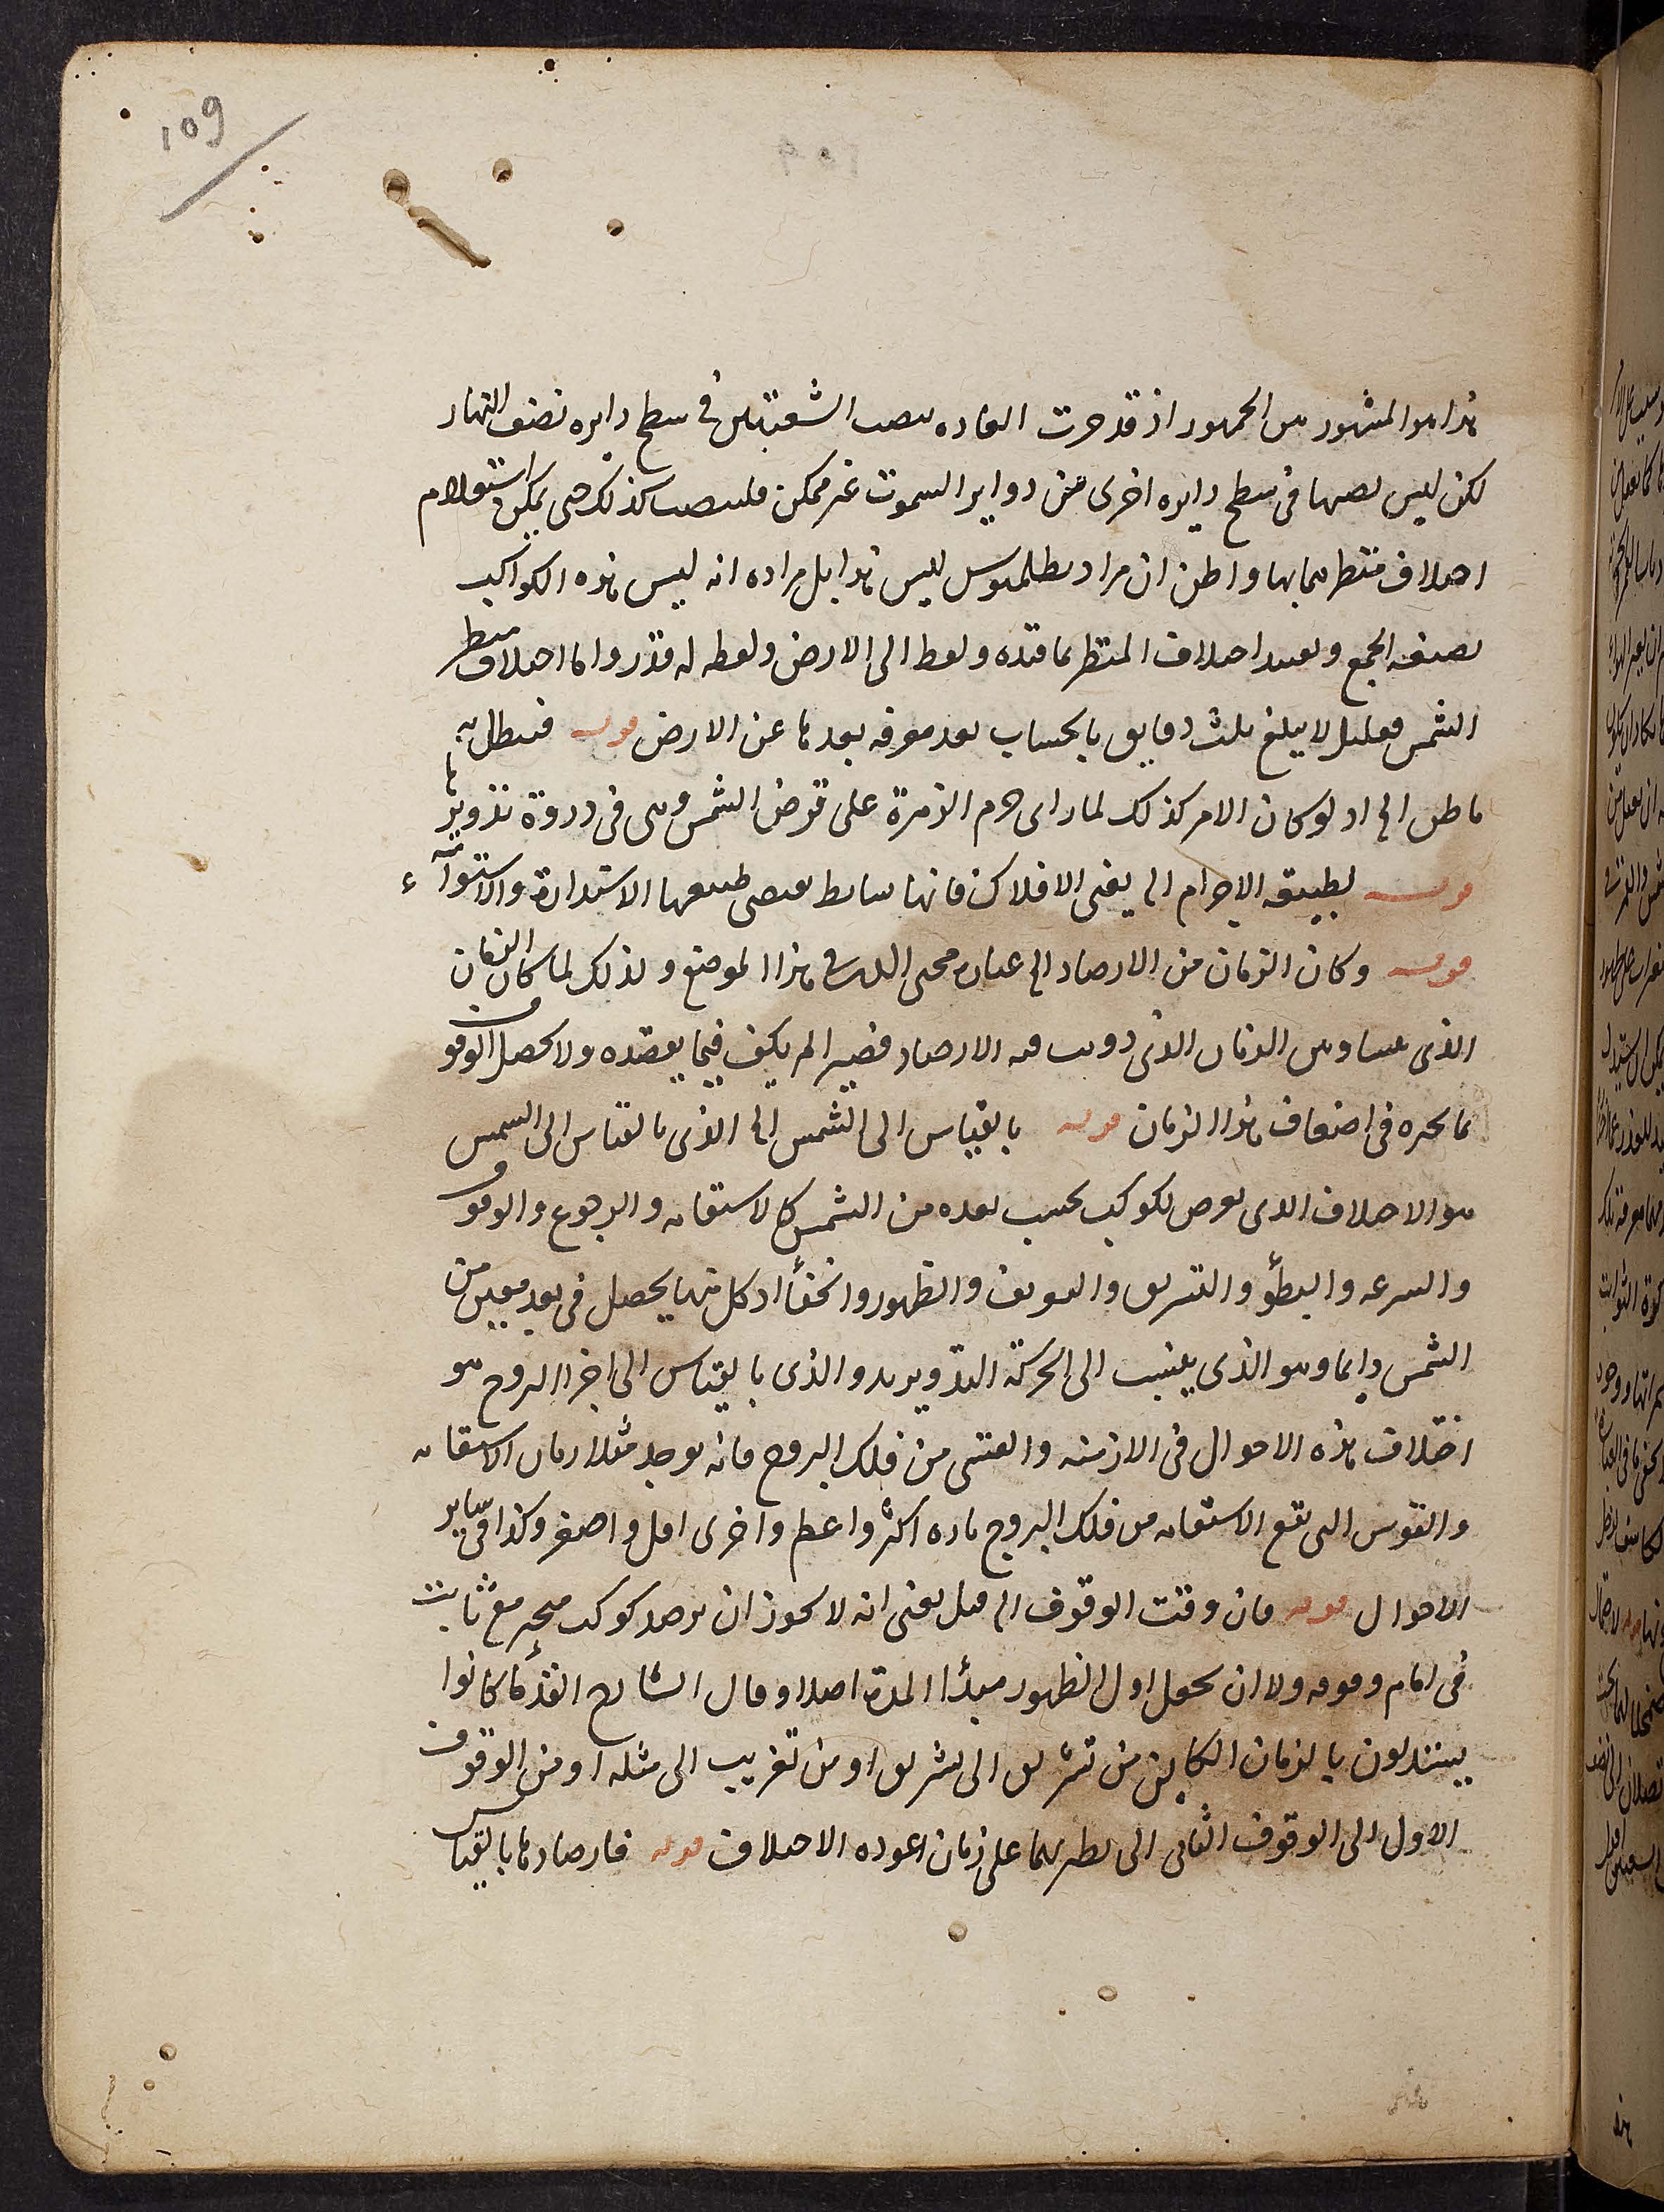 109
هذا هو المشهور من الجمهور اذ قد جرت العاده بنصب الشعبتين فى سطح دايره نصف النهار
لكن ليس نصبها فى سطح دايره اخرى من دواير السموت غير ممكن فلتنصب كذلك حتى يمكن استعلام
اختلاف منظريهما بها واظن ان مراد بطلميوس ليس هذا بل مراده انه ليس هذه الكواكب
بصيغه الجمع وتقييد اختلاف المنظر بما قيده ولفظ الى الارض ولفظه له قدر واما اختلاف منظر
الشمس فقليل لا يبلغ ثلث دقايق بالحساب بعد معرفه بعدها عن الارض قوله فيبطل به
ما ظن الخ اذ لو كان الامر كذلك لما راى جرم الزهرة على قرص الشمس وهى فى ذروة تدويرها
قوله لطبيعه الاجرام الخ يعنى الافلاك فانها بسايط يقتضى طبيعتها الاستدارة والاستوآء
قوله وكان الزمان من الارصاد الخ عباره محيى الدين فى هذا الموضع ولذلك لما كان الزمان
الذى بيننا وبين الزمان الذى دونت فيه الارصاد قصيرا لم يكف فيما يقصده ولا يحصل الوثوق
بما يخبره فى اضعاف هذا الزمان قوله بالقياس الى الشمس الخ الذى بالقياس الى الشمس
هو الاختلاف الذى يعرض لكوكب بحسب بعده من الشمس كالاستقامه والرجوع والوقوف
والسرعه والبطؤ والتشريق والتغريب والظهور والخفآ اذ كل منها يحصل فى بعد معين من
الشمس دايما وهو الذى ينسب الى الحركة التدويريه والذى بالقياس الى اجزا البروج هو
اختلاف هذه الاحوال فى الازمنه والقسى من فلك البروج فانه يوجد مثلا زمان الاستقامه
والقوس التى تقع الاستقامه من فلك البروج تاره اكثر واعظم واخرى اقل واصغر وكذا فى ساير
الاحوال قوله فان وقت الوقوف الخ قيل يعنى انه لا يجوز ان يرصد كوكب متحير مع ثابت
فى ايام وقوفه ولا ان يجعل اول الظهور مبدأ المدة اصلا وقال الشارح القدما كانوا
يستدلون بالزمان الكاين من تشريق الى تشريق او من تغريب الى مثله او من الوقوف
الاول الى الوقوف الثانى الى نظيريهما على زمان عوده الاختلاف قوله فارصادها بالقياس